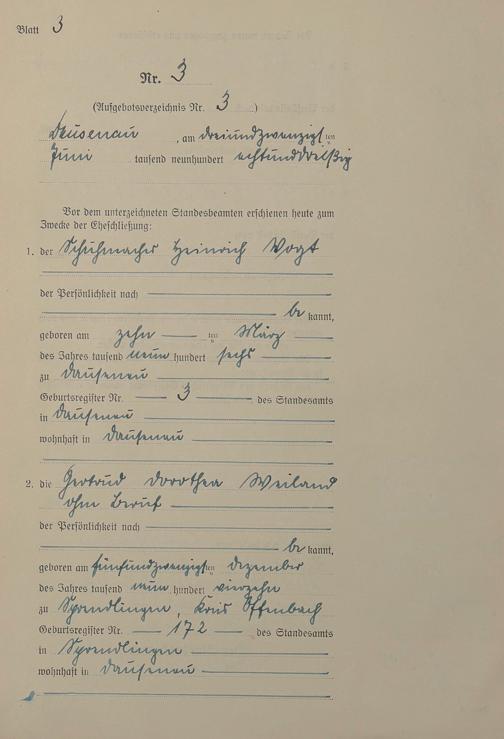 Blatt 3
Nr. 3
(Aufgebotsverzeichnis Nr. 3 )
Dausenau , am dreiundzwanzigsten
Juni tausend neunhundert achtunddreißig
Vor dem unterzeichneten Standesbeamten erschienen heute zum
Zwecke der Eheschließung:
1. der Schuhmacher Heinrich Vogt
der Persönlichkeit nach
be kannt,
geboren am zehn ten März
des Jahres tausend neun hundert sechs
zu Dausenau
Geburtsregister Nr. 3 des Standesamts
in Dausenau
wohnhaft in Dausenau
2. die Gertrud Dorothea Weiland
ohne Beruf
der Persönlichkeit nach
be kannt,
geboren am fünfundzwanzigsten Dezember
des Jahres tausend neun hundert vierzehn
zu Sprendlingen, Kreis Offenbach
Geburtsregister Nr. 172 des Standesamts
in Sprendlingen
wohnhaft in Dausenau